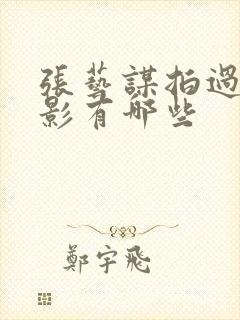 張藝謀拍過
影有哪些
鄭宇飛